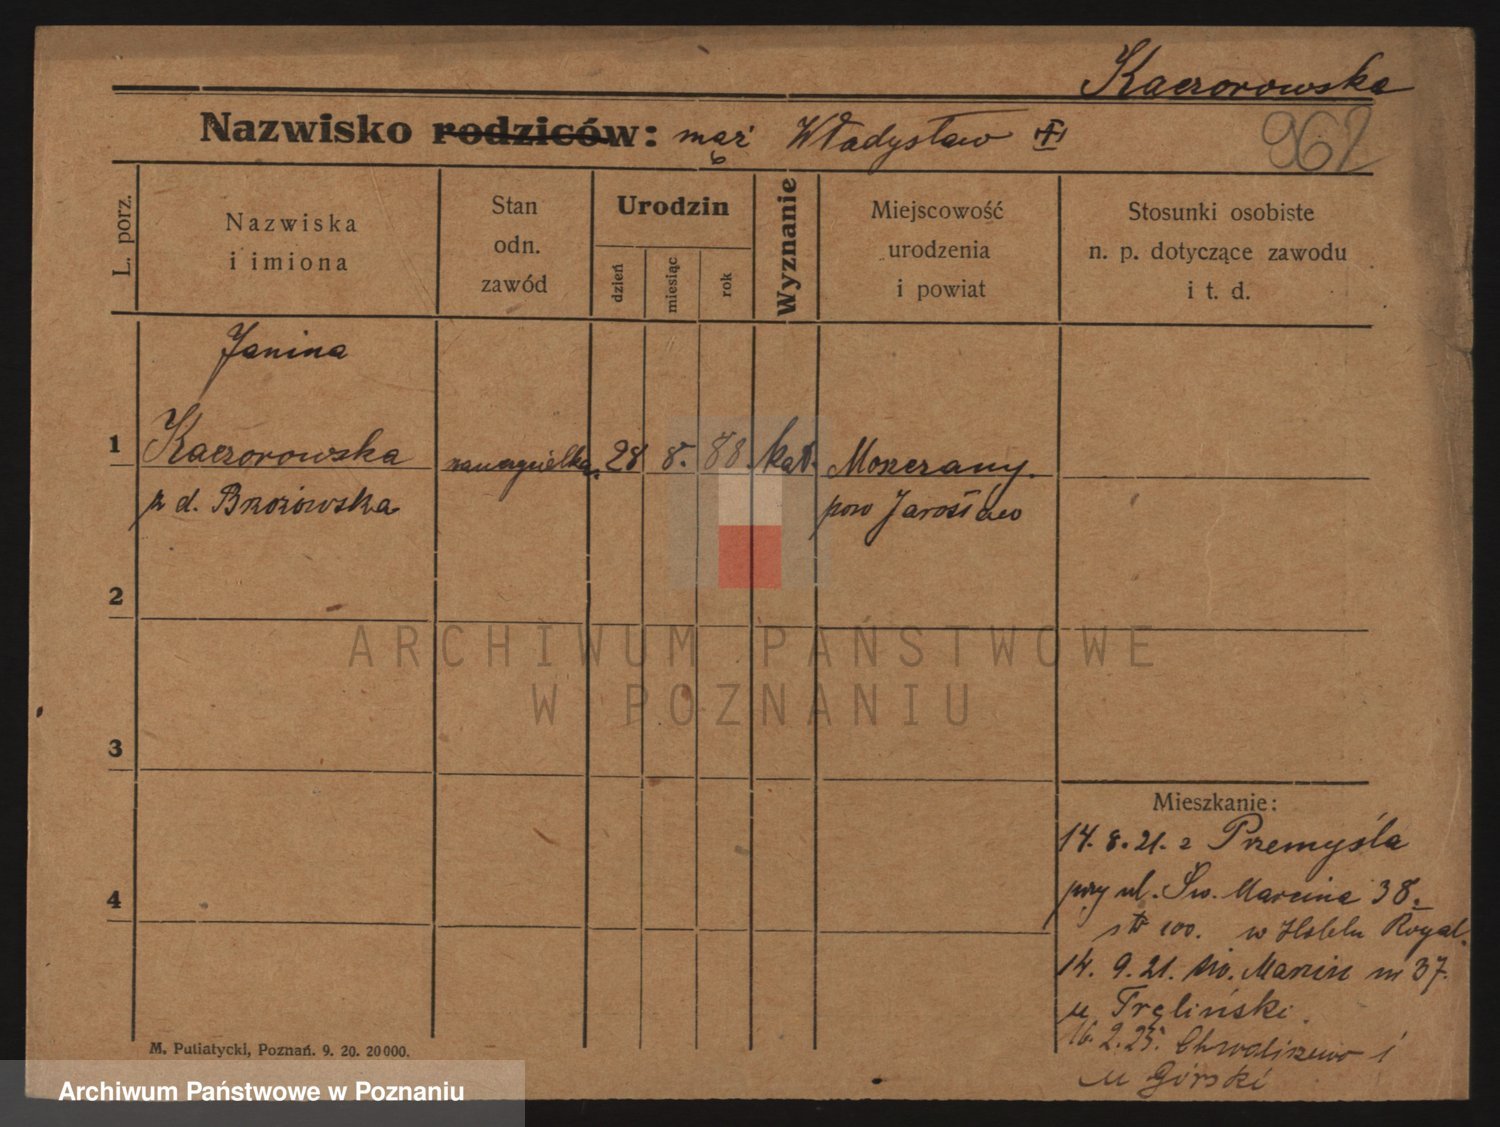 Kaczorowska
Nazwisko rodziców: mąż Władysław
962
L. porz.
Nazwiska
i imiona
Stan
odn.
zawód
Urodzin
dzień
miesiąc
rok
Wyznanie
Miejscowość
urodzenia
i powiat
Stosunki osobiste
n. p. dotyczące zawodu
i t. d.
Janina
1 Kaczorowska nauczycielka 28 8. 88. kat. Moszczany.
z d. Brzozowska pow Jarosław
2
3
4
Mieszkanie:
14. 8. 21. z Przemyśla
przy ul. Św. Marcina 38.
w Hotelu Royal.
14. 9. 21. Św. Marcin nr 37.
u Tręliński.
16. 2. 25. Chwaliszewo 1
u Górski
M. Putiatycki, Poznań. 9. 20. 20 000.
ARCHIWUM PAŃSTWOWE
W POZNANIU
Archiwum Państwowe w Poznaniu